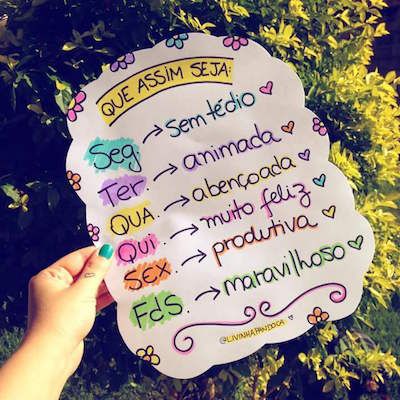 QUE ASSIM SEJA:
Seg → sem tédio
Ter → animada
QUA. → abençoada
Qui → muito feliz
SEX. → produtiva
FdS. → maravilhoso
@LIVINHAPANDOCA